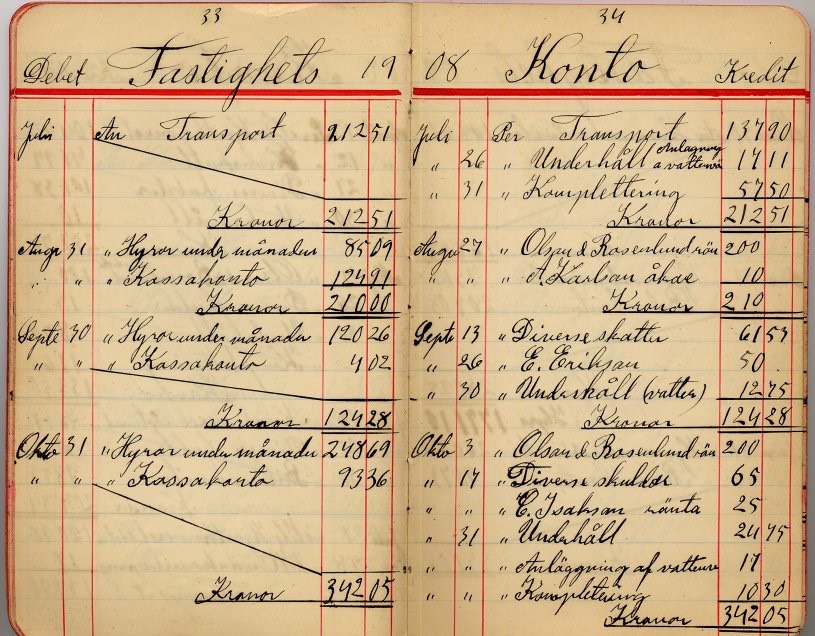 33
Debet Fastighets 19
Juli An Transport 212 51
Kronor 212 51
Augu 31 " Hyror under månaden 85 09
" " " Kassakonto 124 91
Kronor 210 00
Septe 30 " Hyror under månaden 120 26
" " " Kassakonto 4 02
Kronor 124 28
Okto 31 " Hyror under månaden 248 69
" " " Kassakonto 93 36
Kronor 342 05
34
08 Konto Kredit
Juli Per Transport 137 90
" 26 " Underhåll Anlagning a vattenvä 17 11
" 31 " Komplettering 57 50
Kronor 212 51
Augu 27 " Olsan & Rosenlund rän 200
" " " A. Karlsan 10
Kronor 210
Septe 13 " Diverse skatter 61 53
" 26 " E. Eriksan 50
" 30 " Underhåll (vatten) 12 75
Kronor 124 28
Okto 3 " Olsan & Rosenlund rän 200
" 17 " Diverse skulder 65
" " " E. Isaksan ränta 25
" 31 " Underhåll 24 75
" " " Anläggning af vattenve 17
" " " Kompletering 10 30
Kronor 342 05